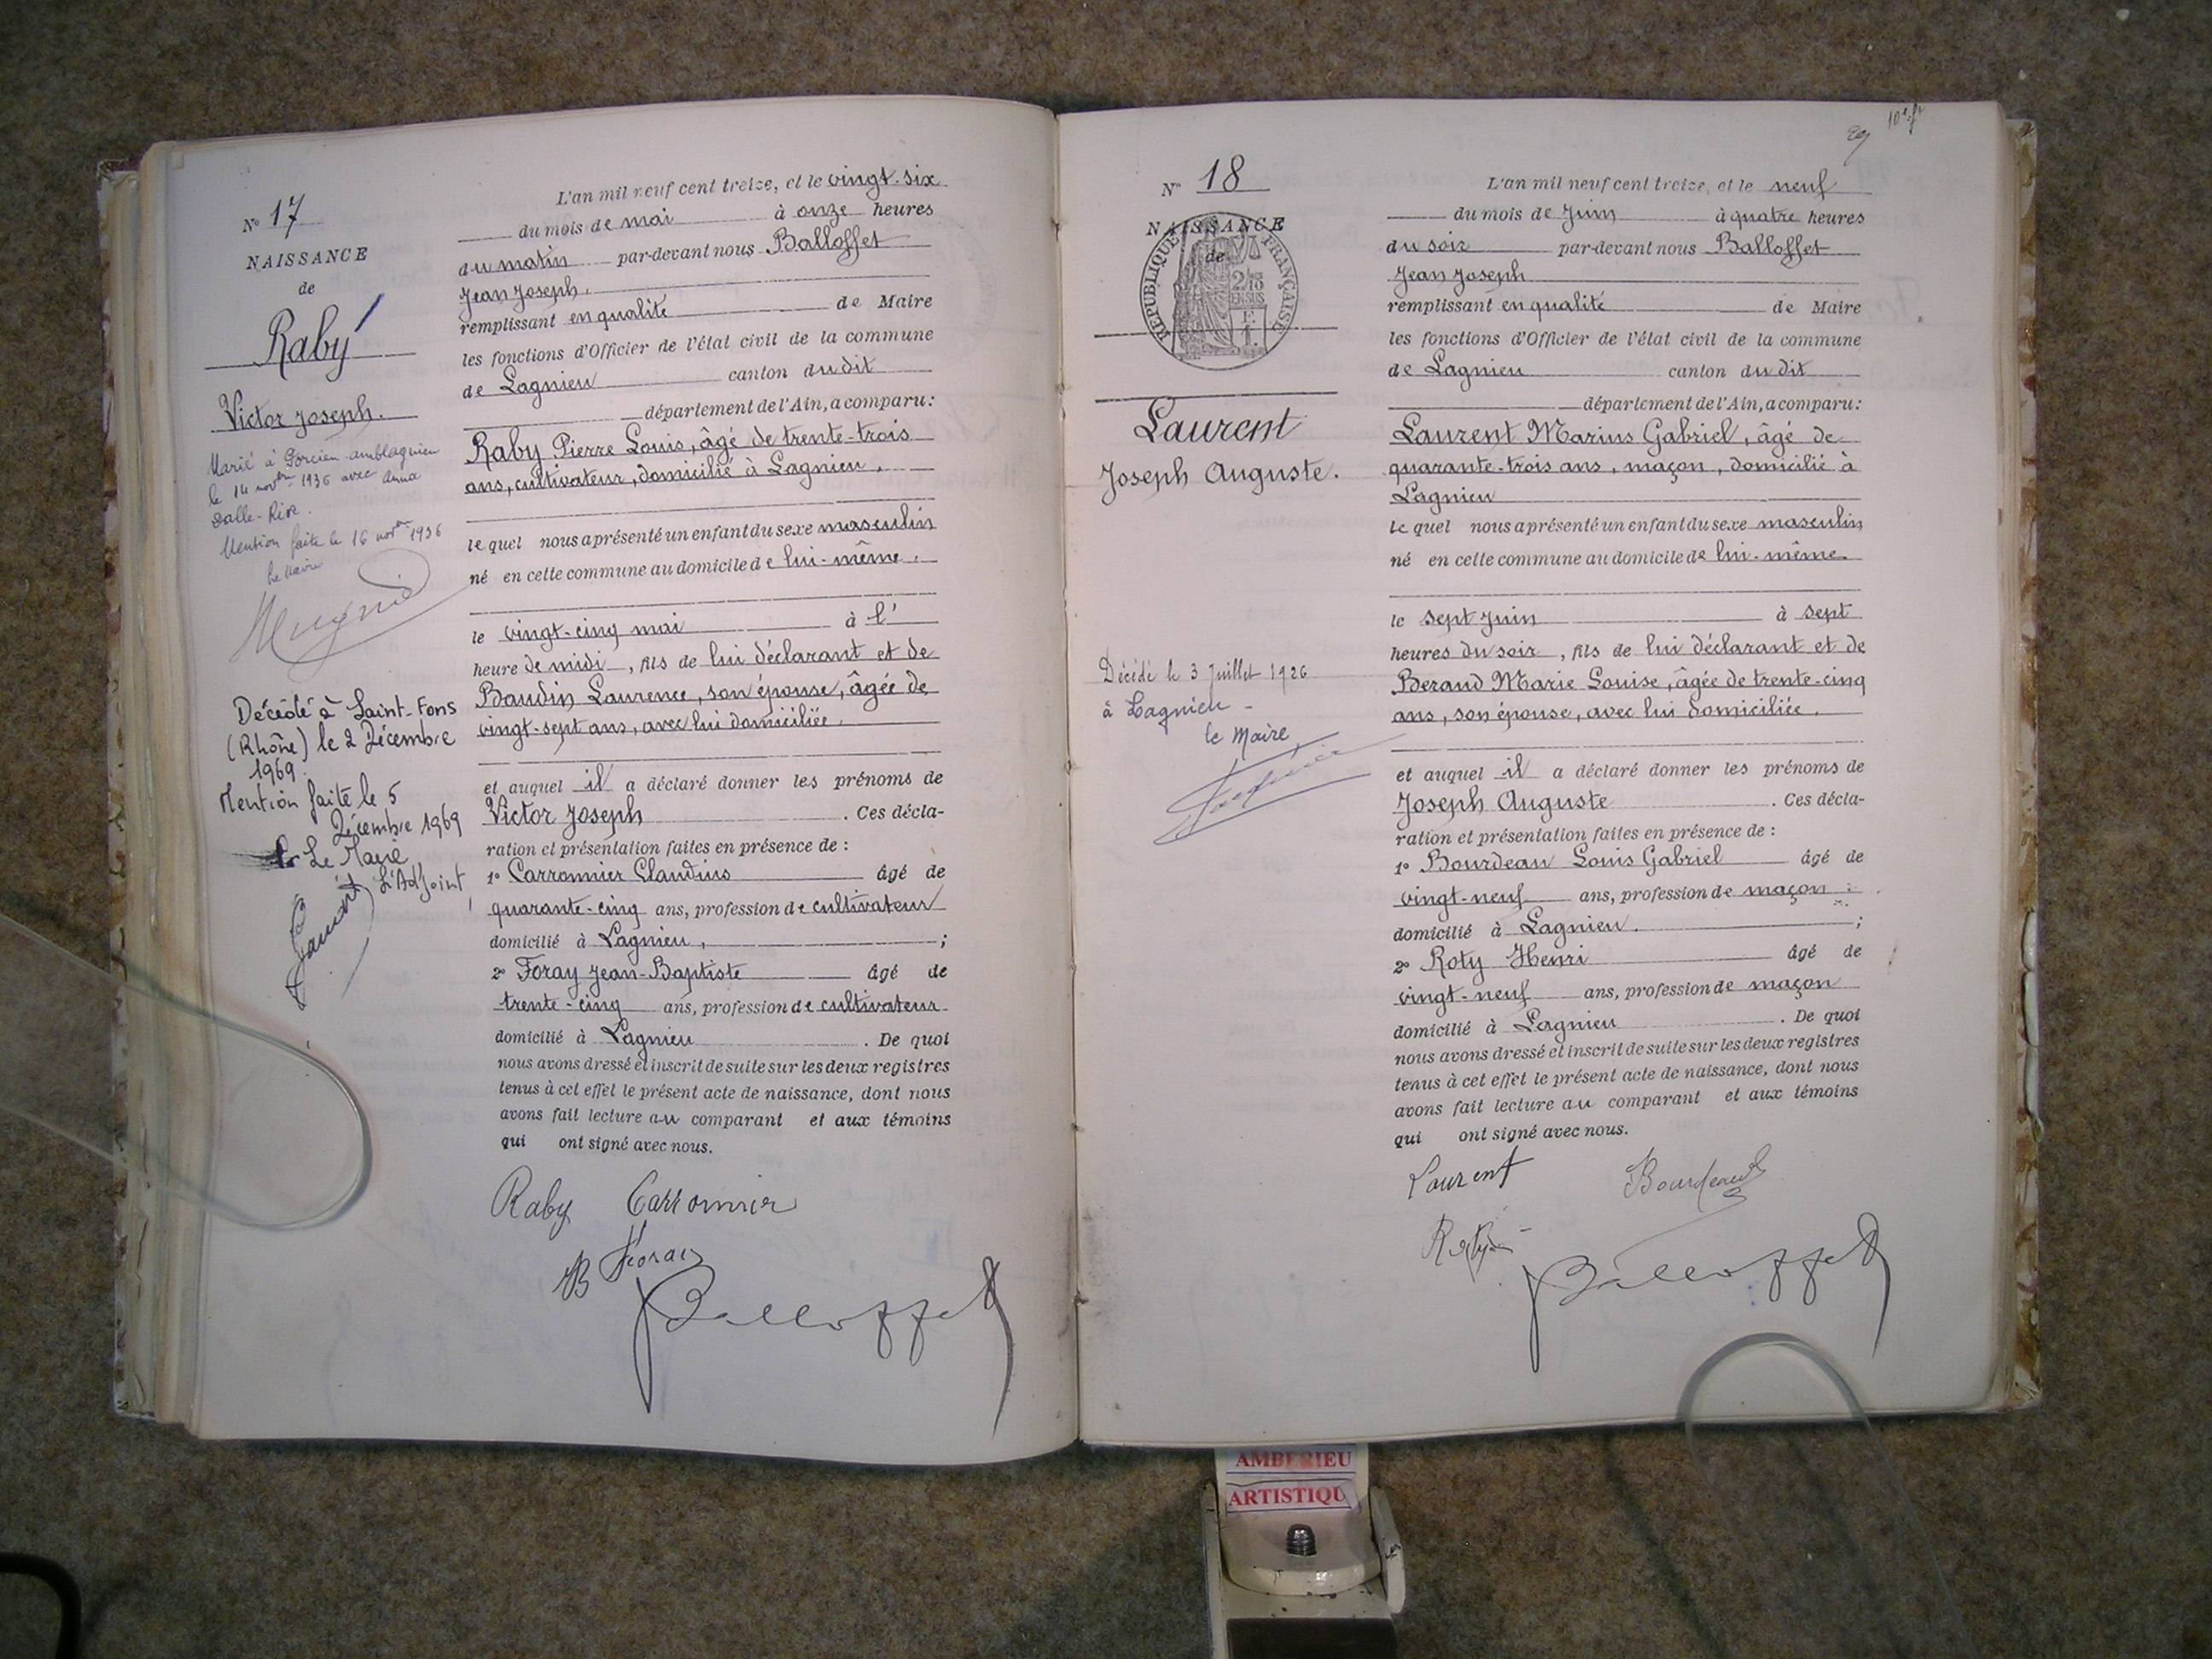 N° 17
NAISSANCE
de
Raby
Victor Joseph.
Marié à Porcieu-Amblagnieu
le 14 novbre 1936 avec Anna
Dalle-Rive.
Mention faite le 16 novbre 1936
Le Maire
Décédé à Saint-Fons
(Rhône) le 2 Décembre
1969.
Mention faite le 5
Décembre 1969
Pr Le Maire
L'Adjoint,
L'an mil neuf cent treize, et le vingt-six
du mois de mai à onze heures
du matin par-devant nous Balloffet
Jean Joseph.
remplissant en qualité de Maire
les fonctions d'Officier de l'état civil de la commune
de Lagnieu canton du dit
département de l'Ain, a comparu :
Raby Pierre Louis, âgé de trente-trois
ans, cultivateur, domicilié à Lagnieu.
le quel nous a présenté un enfant du sexe masculin
né en cette commune au domicile de lui-même.
le vingt-cinq mai à l'
heure de midi, fils de lui déclarant et de
Baudin Laurence, son épouse, âgée de
vingt-sept ans, avec lui domiciliée.
et auquel il a déclaré donner les prénoms de
Victor Joseph . Ces décla-
ration et présentation faites en présence de :
1° Carronnier Claudius âgé de
quarante-cinq ans, profession de cultivateur
domicilié à Lagnieu, ;
2° Foray Jean-Baptiste âgé de
trente-cinq ans, profession de cultivateur
domicilié à Lagnieu . De quoi
nous avons dressé et inscrit de suite sur les deux registres
tenus à cet effet le présent acte de naissance, dont nous
avons fait lecture au comparant et aux témoins
qui ont signé avec nous.
Raby Carronnier
JB Foray
Balloffet
29
N° 18
NAISSANCE
de
RÉPUBLIQUE FRANÇAISE
Laurent
Joseph Auguste.
Décédé le 3 Juillet 1926
à Lagnieu -
le Maire
L'an mil neuf cent treize, et le neuf
du mois de Juin à quatre heures
du soir par-devant nous Balloffet
Jean Joseph
remplissant en qualité de Maire
les fonctions d'Officier de l'état civil de la commune
de Lagnieu canton du dit
département de l'Ain, a comparu :
Laurent Marius Gabriel, âgé de
quarante-trois ans, maçon, domicilié à
Lagnieu
le quel nous a présenté un enfant du sexe masculin
né en cette commune au domicile de lui-même.
le sept Juin à sept
heures du soir, fils de lui déclarant et de
Beraud Marie Louise, âgée de trente-cinq
ans, son épouse, avec lui domiciliée.
et auquel il a déclaré donner les prénoms de
Joseph Auguste . Ces décla-
ration et présentation faites en présence de :
1° Bourdeau Louis Gabriel âgé de
vingt-neuf ans, profession de maçon
domicilié à Lagnieu. ;
2° Roty Henri âgé de
vingt-neuf ans, profession de maçon
domicilié à Lagnieu . De quoi
nous avons dressé et inscrit de suite sur les deux registres
tenus à cet effet le présent acte de naissance, dont nous
avons fait lecture au comparant et aux témoins
qui ont signé avec nous.
Laurent Bourdeau
Balloffet
AMBERIEU
ARTISTIQU